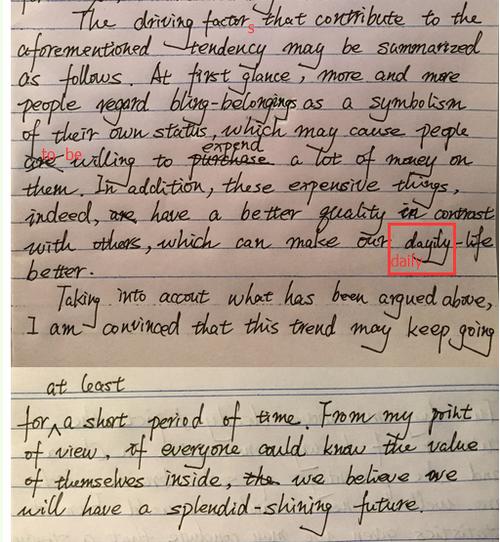 The driving factors that contribute to the
aforementioned tendency may be summarized
as follows. At first glance, more and more
people regard bling-belongings as a symbolism
of their own status, which may cause people
expend
to be
are willing to purchase a lot of money on
them. In addition, these expensive things,
indeed, are have a better quality in contrast
with others, which can make our dayily-life
daily
better.
Taking into accout what has been argued above,
I am convinced that this trend may keep going
at least
for ^ a short period of time. From my point
of view, if everyone could know the value
of themselves inside, the we believe we
will have a splendid-shining future.